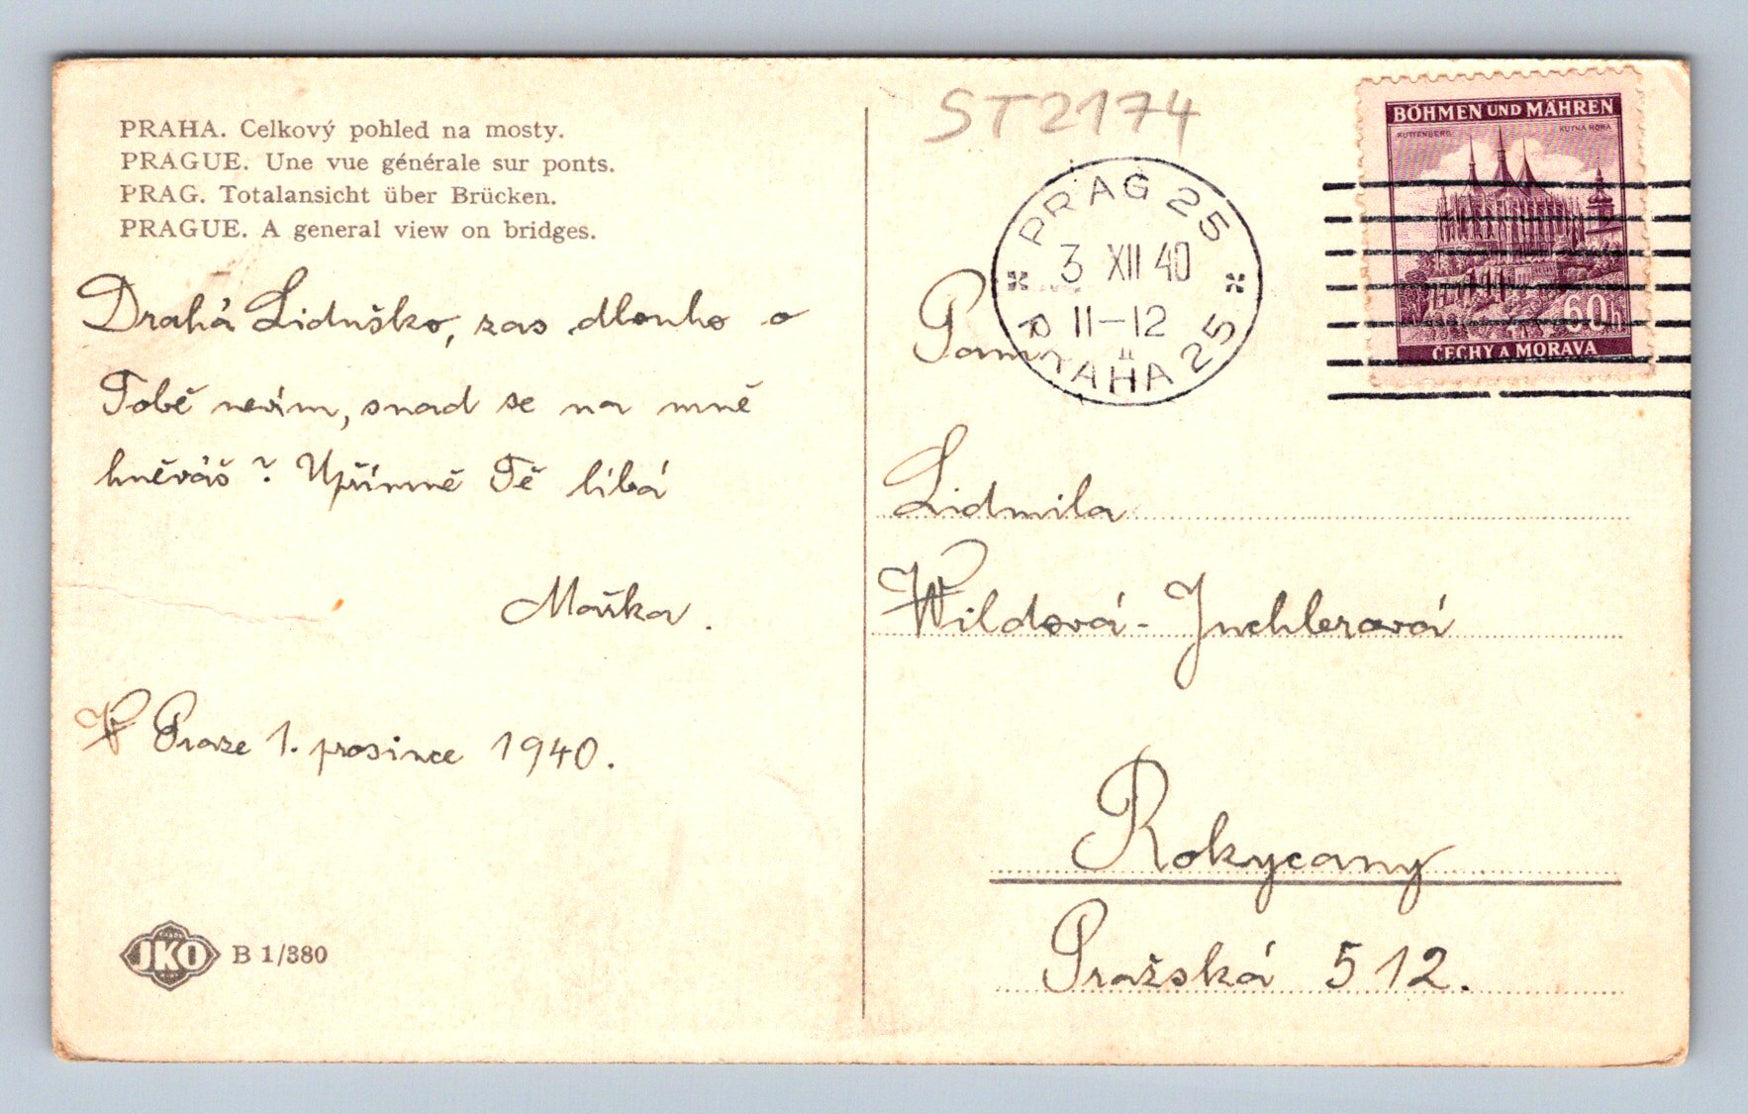 PRAHA. Celkový pohled na mosty.
PRAGUE. Une vue générale sur ponts.
PRAG. Totalansicht über Brücken.
PRAGUE. A general view on bridges.
Drahá Liduško, zas dlouho o
Tobě nevím, snad se na mně
hněváš? Upřímně Tě líbá
Mařka.
V Praze 1. prosince 1940.
JKO B 1/380
ST2174
PRAG 25
3 XII 40
11-12
PRAHA 25
BÖHMEN UND MÄHREN
KUTTENBERG KUTNÁ HORA
60h
ČECHY A MORAVA
Lidmila
Wildová-Juchlerová
Rokycany
Pražská 512.